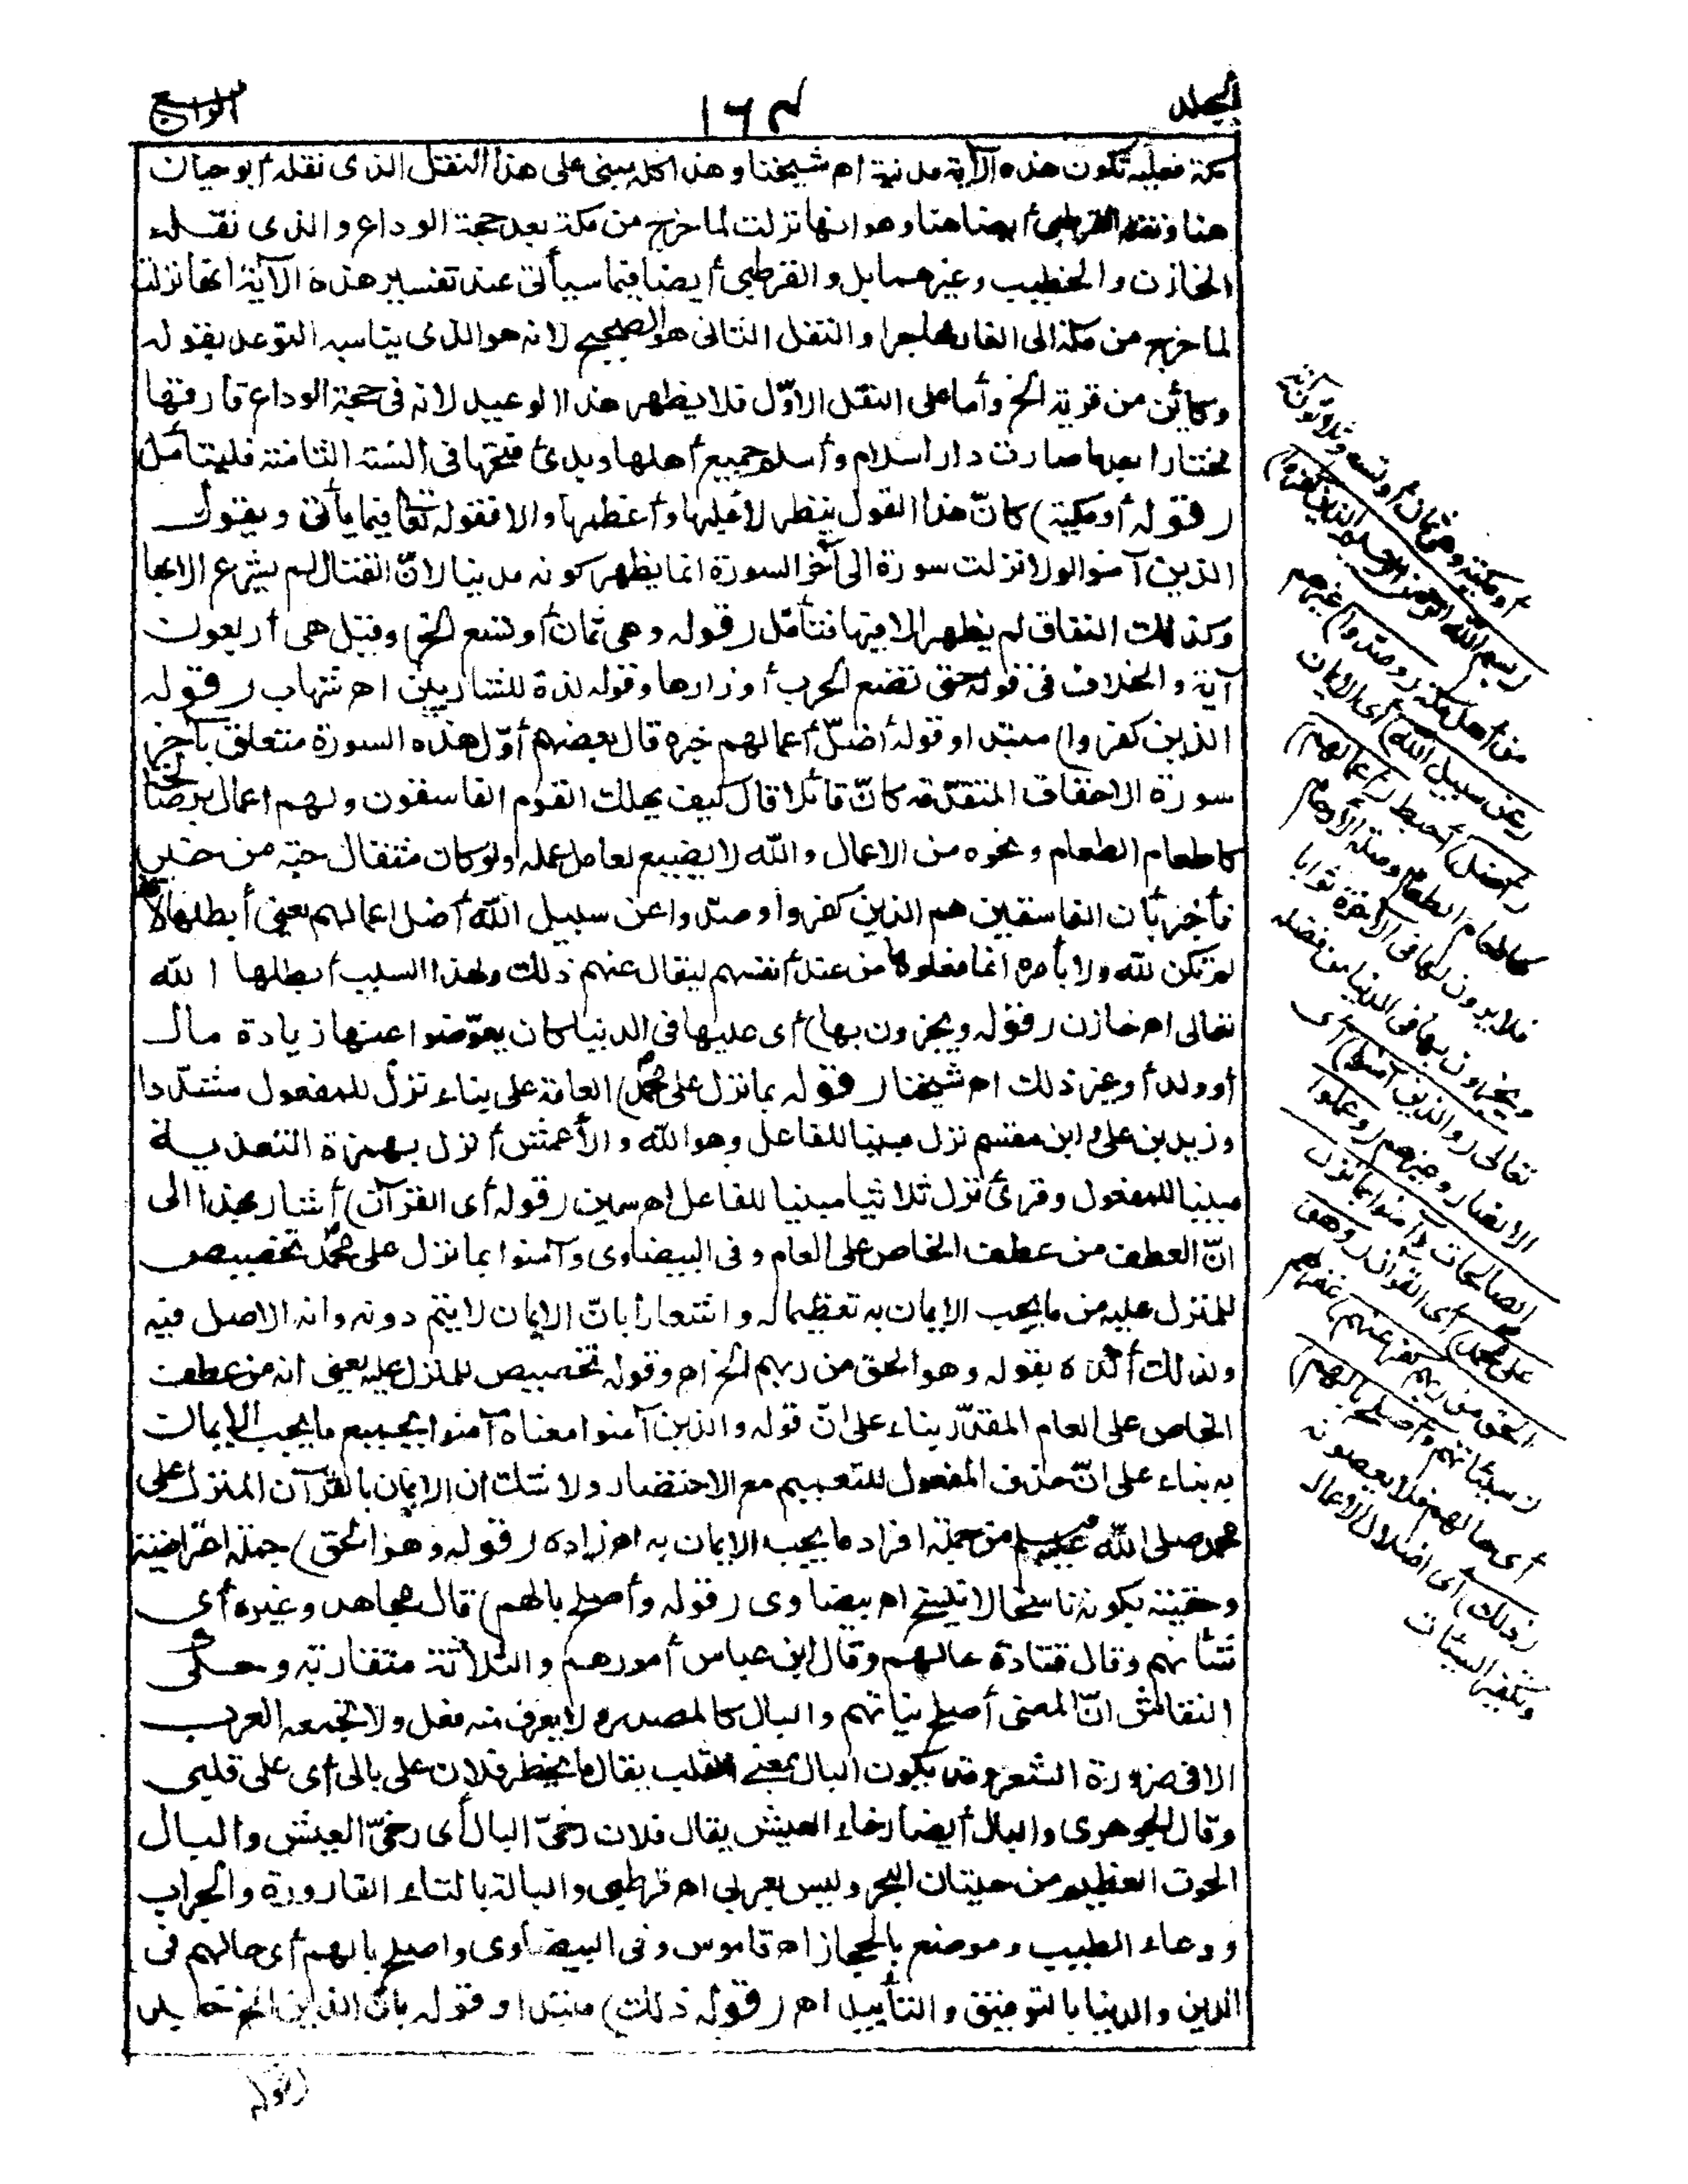 المجلد
١٦٣
الرابع
مكة فعليه تكون هذه الآية مدنية اه شيخنا وهذا كله يبنى على هذا النقل الذى نقله أبو حيان
هنا ونقله القرطبى أيضا هنا وهو انها نزلت لما خرج من مكة بعد حجة الوداع والذى نقله
الخازن والخطيب وغيرهما بل والقرطبى أيضا فيما سيأتى عند تفسير هذه الآية انها نزلت
لما خرج من مكة الى الغار مهاجرا والنقل الثانى هو الصحيح لانه هو الذى يناسبه التوعد بقوله
وكأين من قرية الخ وأما على النقل الاوّل فلا يظهر هذا الوعيد لانه فى حجة الوداع فارقها
مختارا بعد ما صارت دار اسلام وأسلم جميع أهلها وبدئ فتحها فى السنة الثامنة فليتأمل
(قوله أو مكية) كانّ هذا القول ينظر لاغلبها وأعظمها والا فقوله تعالى فيما يأتى ويقول
الذين آمنوا لولا نزلت سورة الى آخر السورة انما يظهر كونه مدنيا لانّ القتال لم يشرع الا بها
وكذلك النفاق لم يظهر الا فيها فتأمّل (قوله وهى ثمان أو تسع الخ) وقيل هى أربعون
آية والخلاف فى قوله حتى تضع الحرب أوزارها وقوله لذة للشاربين اه شهاب (قوله
الذين كفروا) مبتدا وقوله أضلّ أعمالهم خبره قال بعضهم أوّل هذه السورة متعلق بآخر
سورة الاحقاف المتقدّمة كانّ قائلا قال كيف يهلك القوم الفاسقون ولهم اعمال صالحة
كاطعام الطعام ونحوه من الاعمال والله لا يضيع لعامل عمله ولو كان مثقال حبة من خير
فأخبر بأن الفاسقين هم الذين كفروا وصدّوا عن سبيل الله أضل اعمالهم يعنى أبطلها لأنها
لم تكن لله ولا بأمره انما فعلوها من عند أنفسهم ليقال عنهم ذلك ولهذا السبب أبطلها الله
تعالى اه خازن (قوله ويجزون بها) أى عليها فى الدنيا كان يعوّضوا عنها زيادة مال
أو ولد أو غير ذلك اه شيخنا (قوله بما نزل على محمد) العامة على بناء نزل للمفعول مشدّدا
وزيد بن على وابن مقسم نزل مبنيا للفاعل وهو الله والأعمش أنزل بهمزة التعدية
مبنيا للمفعول وقرئ نزل ثلاثيا مبنيا للفاعل اه سمين (قوله أى القرآن) أشار بهذا الى
انّ العطف من عطف الخاص على العام وفى البيضاوى وآمنوا بما نزل على محمد تخصيص
للمنزل عليه من ما يجب الايمان به تعظيما له واشعارا بانّ الايمان لا يتم دونه وانه الاصل فيه
ولذلك أكده بقوله وهو الحق من ربهم الخ اه وقوله تخصيص للمنزل عليه يعنى انه من عطف
الخاص على العام المقدّر بناء على انّ قوله والذين آمنوا معناه آمنوا بجميع ما يجب الايمان
به بناء على انّ حذف المفعول للتعميم مع الاختصار ولا شك ان الايمان بالقرآن المنزل على
محمد صلى الله عليه وسلم من جملة افراد ما يجب الايمان به اه زاده (قوله وهو الحق) جملة اعتراضية
وحقيته بكونه ناسخا لا ينسخ اه بيضاوى (قوله وأصلح بالهم) قال مجاهد وغيره أى
شأنهم وقال قتادة حالهم وقال ابن عباس أمورهم والثلاثة متقاربة وحكى
النقاش انّ المعنى أصلح نياتهم والبال كالمصدر ولا يعرف منه فعل ولا تجمعه العرب
الا فى ضرورة الشعر وقد يكون البال بمعنى القلب يقال ما يخطر فلان على بالى أى على قلبى
وقال الجوهرى والبال أيضا رخاء العيش يقال فلان رخىّ البال أى رخىّ العيش والبال
الحوت العظيم من حيتان البحر وليس بعربى اه قرطبى والبالة بالتاء القارورة والجراب
ووعاء الطيب وموضع بالحجاز اه قاموس وفى البيضاوى واصلح بالهم أى حالهم فى
الدين والدنيا بالتوفيق والتأييد اه (قوله ذلك) مبتدا وقوله بانّ الذين الخ خبره
(قوله
أو مكية وهى ثمان أو تسع وثلاثون آية
(بسم الله الرحمن الرحيم الذين كفروا)
من أهل مكة (وصدّوا) غيرهم
(عن سبيل الله) أى الايمان
(أضل) أحبط (أعمالهم)
كاطعام الطعام وصلة الأرحام
فلا يرون لها فى الآخرة ثوابا
ويجزون بها فى الدنيا من فضله
تعالى (والذين آمنوا) أى
الانصار وغيرهم (وعملوا
الصالحات وآمنوا بما نزل
على محمد) أى القرآن (وهو
الحق من ربهم كفر عنهم) غفر لهم
(سيئاتهم وأصلح بالهم)
أى حالهم فلا يعصونه
(ذلك) أى اضلال الاعمال
وتكفير السيئات